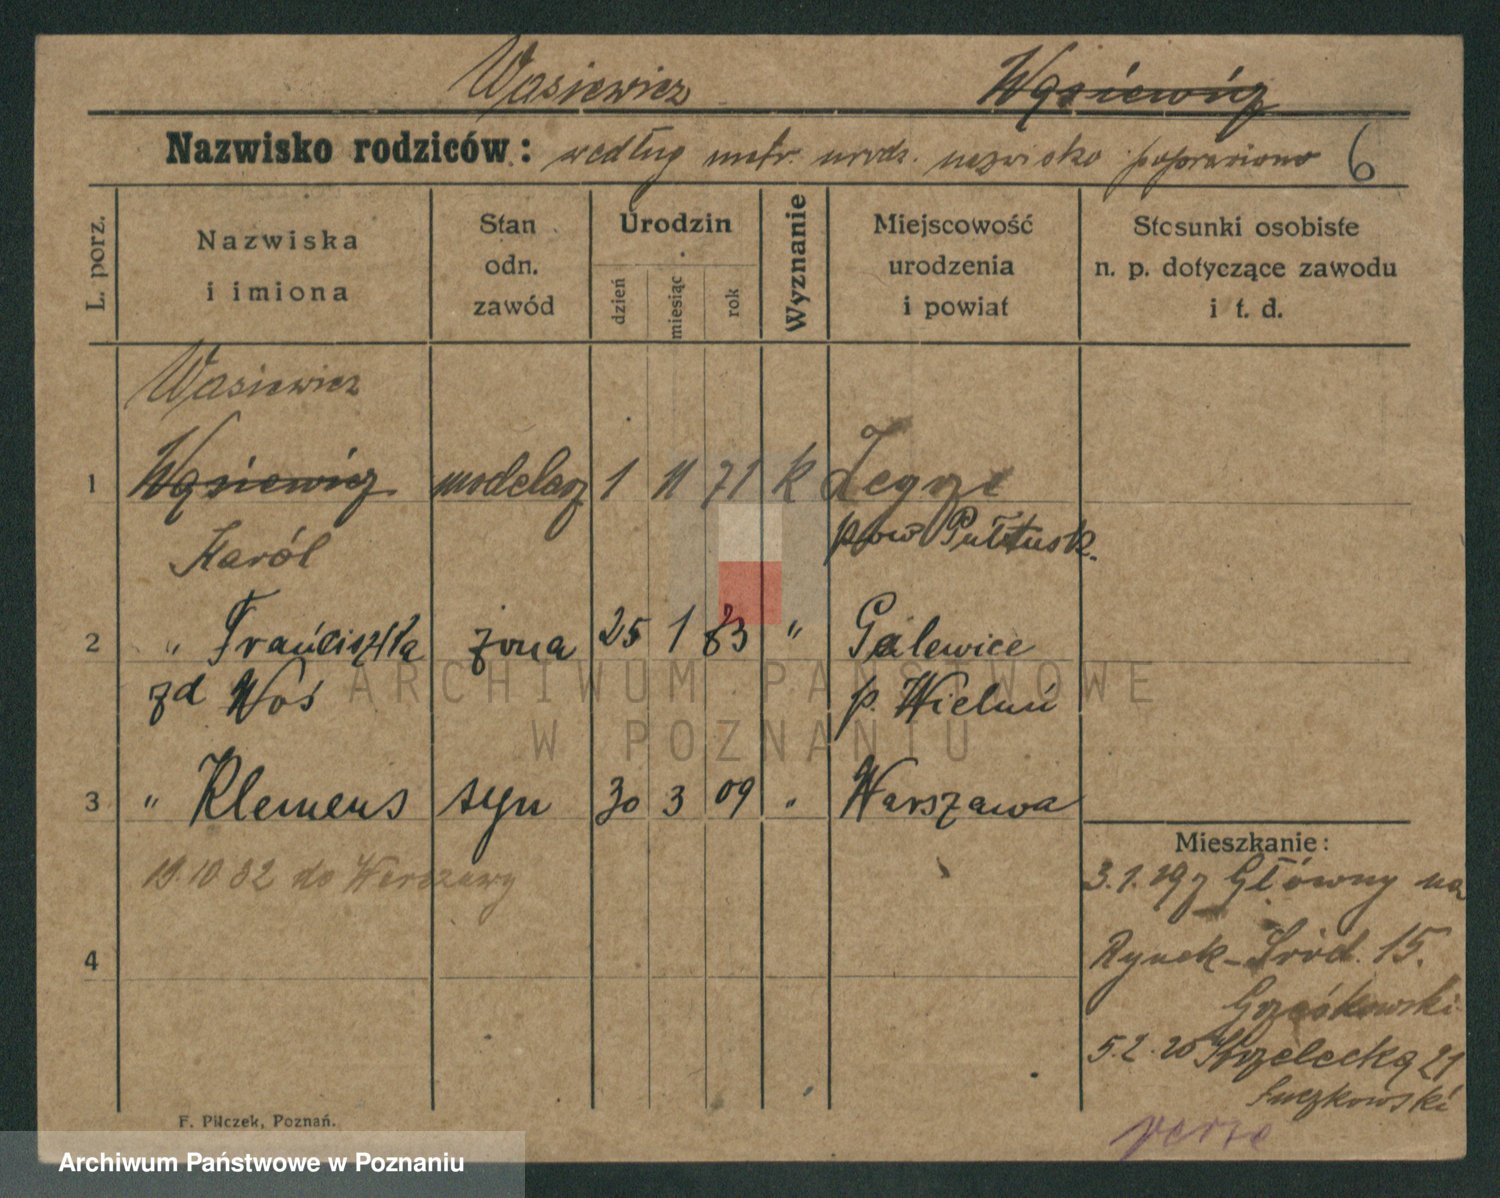 Wasiewicz Wąsiewicz
Nazwisko rodziców: według metr. urodz. nazwisko poprawiono 6
L. porz.
Nazwiska
i imiona
Stan
odn.
zawód
Urodzin
dzień
miesiąc
rok
Wyznanie
Miejscowość
urodzenia
i powiat
Stosunki osobiste
n. p. dotyczące zawodu
i t. d.
Wasiewicz
1 Wąsiewicz modelarz 1 11 71 k Zegrze
Karól pow Pułtusk.
2 " Franciszka żona 25 1 83 " Galewice
zd Woś p. Wieluń
3 " Klemens syn 30 3 09 " Warszawa
19.10.32 do Warszawy
4
Mieszkanie:
3.1.19 z Główny na
Rynek-Śród. 15.
5.2.20 Strzelecka 21
verte
F. Pilczek, Poznań.
ARCHIWUM PAŃSTWOWE
W POZNANIU
Archiwum Państwowe w Poznaniu